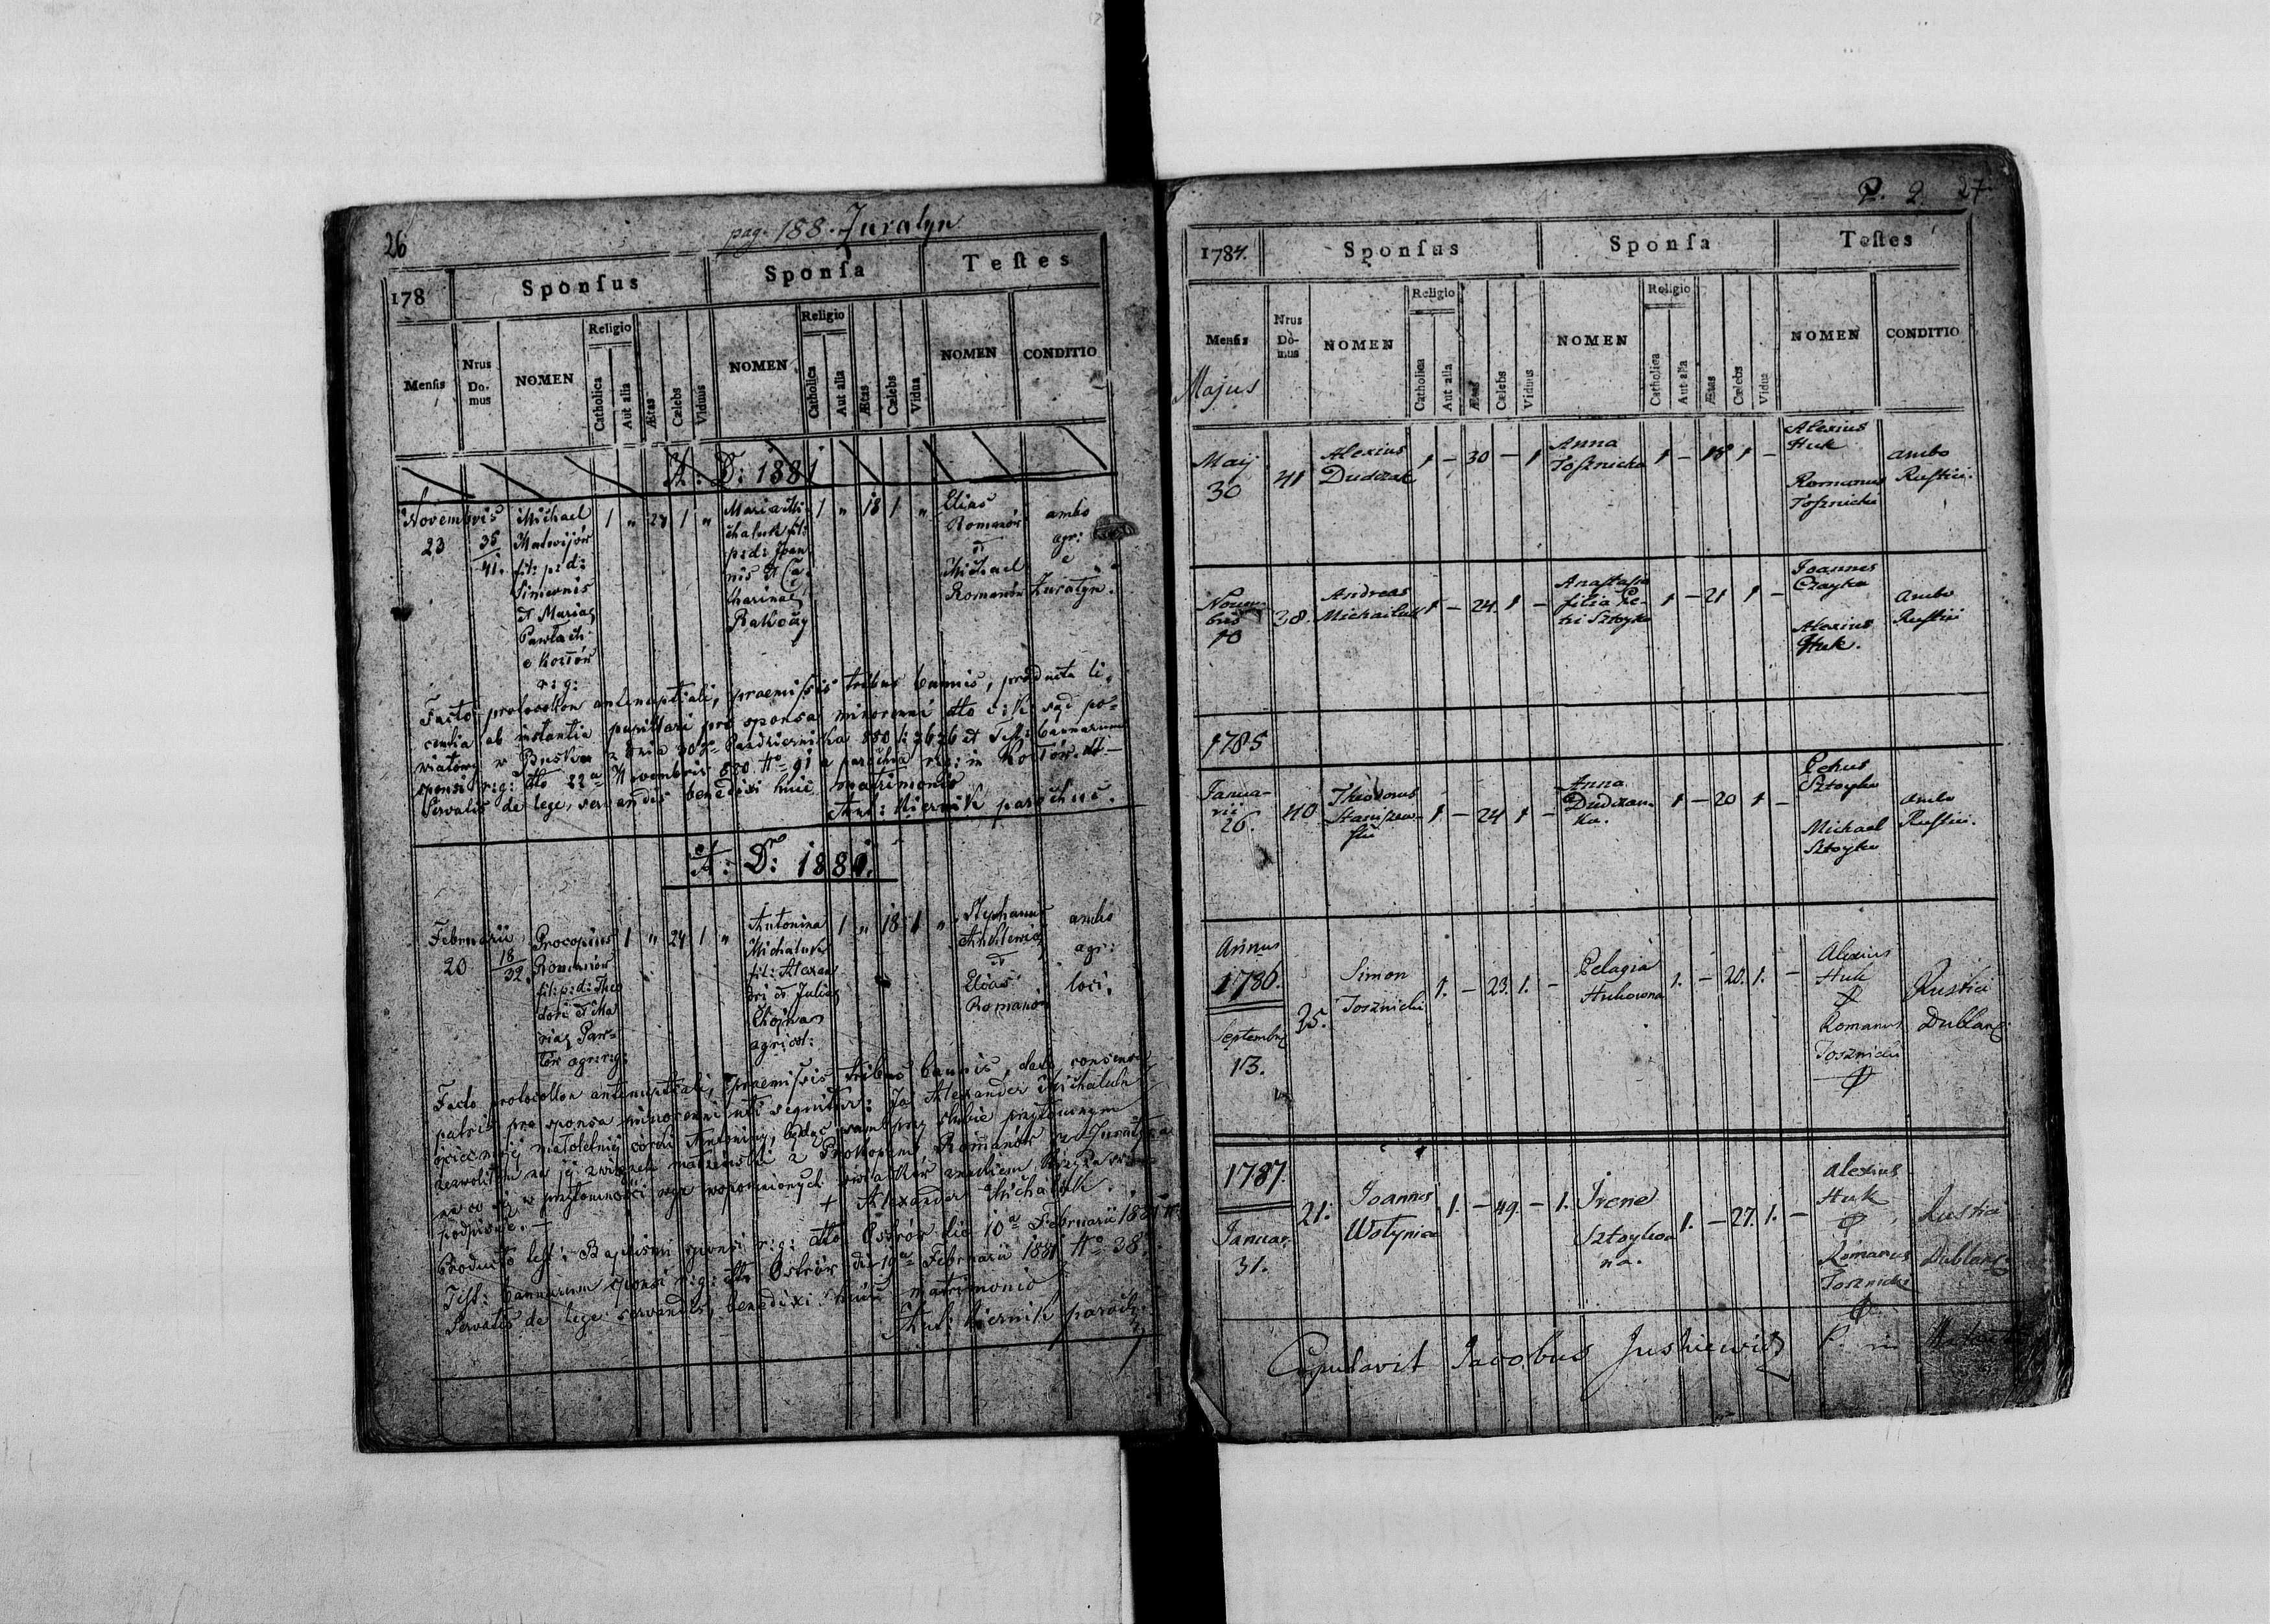 26
pag. 188. Zuratyn
178
Sponſus
Sponſa
Teſtes
Menſis
Nrus Domus
NOMEN
Religio
Catholica
Aut alia
Ætas
Cælebs
Viduus
NOMEN
Religio
Catholica
Aut alia
Ætas
Cælebs
Vidua
NOMEN
CONDITIO
A: D: 1881
Novembris 23
35/41.
Michael
Matwijów
fil: p: d:
Simeonis
et Mariae
Pawlach
r: g:
1 „ 24 1 „
Maria Mi-
chaluk fil:
p: d: Joan
nis et Ca-
tharinae
1 „ 18 1 „
Elias
Romanów
et
Michael
Romanów
ambo
agr:
e
Zuratyn.
Facto protocollon antenuptiali, praemissis tribus bannis, producta li-
centia ab instantia pupillari pro sponsa minorenni dto c: k: sąd po-
wiatowy w Busku z dnia 30go Października 880 l: 7676 et Test: bannorum
sponsi r: g: dto 22a Novembris 880 No 91 a parocho r: g: in
Servatis de lege servandis benedixi huic matrimonio
Ant: Kiernik parochus.
A: D: 1881.
Februarii 20
18/32.
Procopius
Romanów
fil: p: d: Theo
dori et Ma
riae
agr: r: g:
1 „ 24 1 „
Antonina
Michaluk
fil: Alexan
dri et Juliae
agricol:
1 „ 18 1 „
Stephanus
et
Elias
Romanów
ambo
agr:
loci.
Facto protocollon antenuptiali, praemissis tribus bannis, dato consensu
patris pro sponsa minorenni uti sequitur: Ja Alexander Michaluk
ojciec mojej małoletniej córki Antoniny, będąc sam przy ślubie przytomnym
zezwoliłem na jej związek małżeński z Prokopem Romanów z Zuratyna
na co się w przytomności wspomnionych świadków znakiem krzyża św.
podpisuję. —
+ Alexander Michaluk.
Producto test: Baptismi sponsi r: g: dto Ostrów die 10a Februarii 1881
Test: bannorum sponsi r: g: dto Ostrów die 19a Februarii 1881 No 38.
Servatis de lege servandis, benedixi huic matrimonio
Ant: Kiernik paroch:
P. 2 27
1784.
Sponſus
Sponſa
Teſtes
Menſis
Majus
Nrus Domus
NOMEN
Religio
Catholica
Aut alia
Ætas
Cælebs
Viduus
NOMEN
Religio
Catholica
Aut alia
Ætas
Cælebs
Vidua
NOMEN
CONDITIO
Maij 30
41
Alexius
Dudzak
1 — 30 — 1
Anna
Tosznicka
1 — 18 1 —
Alexius
Huk
Romanus
Tosznicki
ambo
Rustici.
Novembris 10
38.
Andreas
Michailuk
1 — 24. 1 —
Anastasia
filia Pe-
tri Sztoyko
1 — 21 1 —
Joannes
Czayka
Alexius
Huk.
Ambo
Rustici
1785
Janua-
rii
26.
40
Theodorus
Staniszew-
ski
1. — 24 1 —
Anna
Dudzan-
ka.
1 — 20 1 —
Petrus
Sztoyko
Michael
Sztoyko
ambo
Rustici.
Annus
1786.
Septembris
13.
25.
Simon
Tosznicki
1. — 23. 1. —
Pelagia
Hukowna
1. — 20. 1. —
Alexius
Huk
Romanus
Tosznicki
Rustici
Dublans:
1787.
Januar.
31.
21.
Joannes
Wołyniec
1. — 49. — 1.
Irene
Sztoykow
na.
1. — 27. 1. —
Alexius
Huk
Romanus
Tosznicki
Rustici
Dublans:
Copulavit Jacobus Juskiewicz P. in